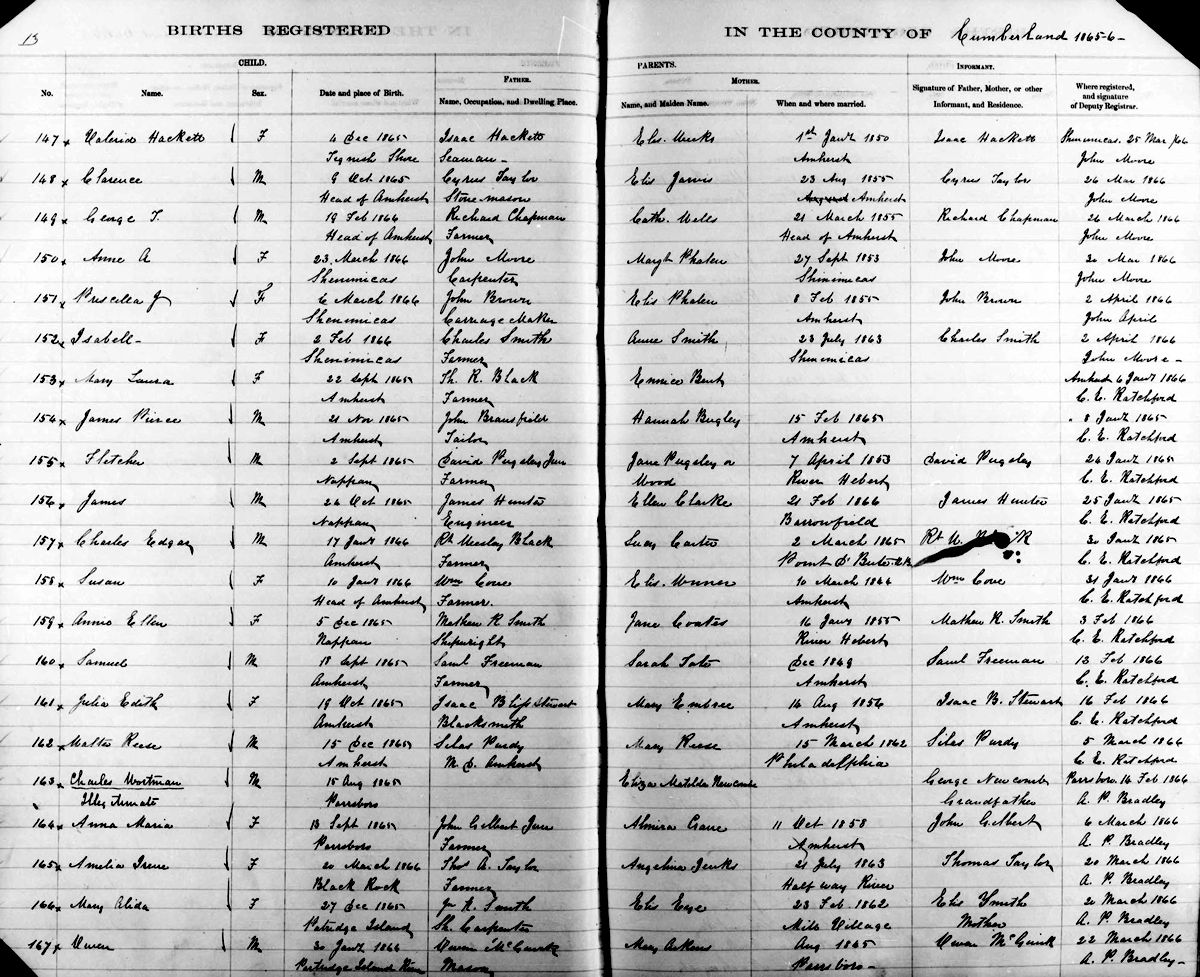 13
BIRTHS REGISTERED IN THE COUNTY OF Cumberland 1865-6-
CHILD. PARENTS.
FATHER. MOTHER. INFORMANT.
No. Name. Sex. Date and place of Birth. Name, Occupation, and Dwelling Place. Name, and Maiden Name. When and where married. Signature of Father, Mother, or other Informant, and Residence. Where registered, and signature of Deputy Registrar.
147 x Valeria Hackett F 4 Dec 1865 Isaac Hackett Elis. Meeks 1st Janz 1850 Isaac Hackett Shinimicas. 25 Mar /66
Tignish Shore Seaman - Amherst John Moore
148 x Clarence M 9 Oct 1865 Cyrus Taylor Elis Jarvis 23 Aug 1855 Cyrus Taylor 26 Mar 1866
Head of Amherst Stone mason Amherst John Moore
149 x George T. M 19 Feb 1866 Richard Chapman Cath. Wells 21 March 1855 Richard Chapman 26 March 1866
Head of Amherst Farmer Head of Amherst John Moore
150 x Anne A F 23 March 1866 John Moore Margt Phalen 27 Sept 1853 John Moore 30 Mar 1866
Shenimicas Carpenter Shinimicas John Moore
151 x Priscella J F 6 March 1866 John Brown Elis Phalen 8 Feb 1855 John Brown 2 April 1866
Shenimicas Carriage Maker Amherst John April
152 x Isabell- F 2 Feb 1866 Charles Smith Anne Smith 23 July 1863 Charles Smith 2 April 1866
Shenimicas Farmer Shinimicas John Moore -
153 x Mary Laura F 22 Sept 1865 Th. R. Black Eunice Bent Amherst 6 Janz 1866
Amherst Farmer C. E. Ratchford
154 x James Pierce M 21 Nov 1865 John Bransfield Hannah Bugley 15 Feb 1865 " 8 Janz 1865
Amherst Tailor Amherst C. E. Ratchford
155 x Fletcher M 2 Sept 1865 David Pugsley Jun Jane Pugsley or 7 April 1853 David Pugsley 24 Janz 1865
Nappan Farmer Wood River Hebert C. E. Ratchford
156 x James M 24 Oct 1865 James Hunter Ellen Clarke 21 Feb 1866 James Hunter 25 Janz 1865
Nappan Engineer Barrowfield C. E. Ratchford
157 x Charles Edgar M 17 Janz 1866 Rt Wesley Black Lucy Carter 2 March 1865 Rt W. 30 Janz 1865
Amherst Farmer Point D'Bute C. E. Ratchford
158 x Susan F 10 Janz 1866 Wm Cove Elis. 10 March 1864 Wm Cove 31 Janz 1866
Head of Amherst Farmer. Amherst C. E. Ratchford
159 x Annie Ellen F 5 Dec 1865 Mathew R Smith Jane Coates 16 Janz 1855 Mathew R. Smith 3 Feb 1866
Nappan Shipwright River Hebert C. E. Ratchford
160 x Samuel M 18 Sept 1865 Saml Freeman Sarah Dec 1849 Saml Freeman 13 Feb 1866
Amherst Farmer Amherst C. E. Ratchford
161 x Julia Edith F 19 Oct 1865 Isaac B Stewart Mary Embree 14 Aug 1856 Isaac B. Stewart 16 Feb 1866
Amherst Blacksmith Amherst C. E. Ratchford
162 x Walter Reese M 15 Dec 1865 Silas Purdy Mary Reese 15 March 1862 Silas Purdy 5 March 1866
Amherst M. D. Amherst Philadelphia C. E. Ratchford
163 x Charles Wortman M 15 Aug 1865 Eliza Matilda Newcombe George Newcomb Parrsboro. 14 Feb 1866
Illegitimate Parrsboro Grandfather A. P. Bradley
164 x Anna Maria F 13 Sept 1865 John Gilbert June Almira Crane 11 Oct 1858 John Gilbert 6 March 1866
Parrsboro Farmer Amherst A. P. Bradley
165 x Amelia Irene F 20 March 1866 Thos A. Taylor Angelina Jenks 21 July 1863 Thomas Taylor 20 March 1866
Black Rock Farmer Half way River A. P. Bradley
166 x Mary Alida F 27 Dec 1865 Smith Elis 23 Feb 1862 Elis Smith 20 March 1866
Patridge Island Sh. Carpenter Mill Village Mother A. P. Bradley
167 x Owen M 30 Janz 1866 Owen McGuirk Mary Askens Aug 1865 Owen McGuirk 22 March 1866
Partridge Island River Mason Parrsboro - A. P. Bradley -